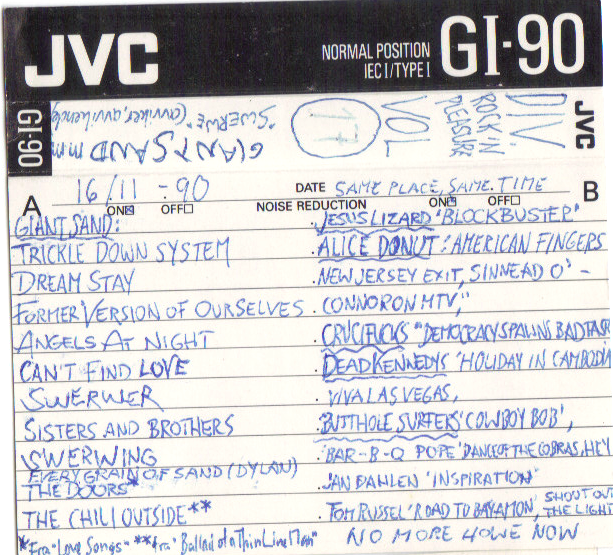 JVC
NORMAL POSITION
IEC I/TYPE I
GI-90
GI-90
GIANT SAND m.m.
"SWERVE"
VOL
17
DIV.
ROCK IN
PLEASURE
JVC
A
16/11 - 90
DATE SAME PLACE, SAME TIME
B
ON OFF
NOISE REDUCTION
ON OFF
GIANT SAND:
TRICKLE DOWN SYSTEM
DREAM STAY
FORMER VERSION OF OURSELVES
ANGELS AT NIGHT
CAN'T FIND LOVE
SWERVER
SISTERS AND BROTHERS
SWERVING
EVERY GRAIN OF SAND (DYLAN)
THE DOORS*
THE CHILL OUTSIDE**
*Fra "Love Songs" **fra "Ballad of a Thin Line Man"
. JESUS LIZARD 'BLOCKBUSTER'
. ALICE DONUT: 'AMERICAN FINGERS
. NEW JERSEY EXIT, SINNEAD O' -
. CONNOR ON MTV,"
. CRUCIFUCKS "DEMOCRACY SPAWNS BAD TASTE
. DEAD KENNEDYS 'HOLIDAY IN CAMBODIA
. VIVA LAS VEGAS,
. BUTTHOLE SURFERS 'COWBOY BOB',
. 'BAR-B-Q POPE 'DANCE OF THE COBRAS, HEY
. JAN DAHLEN 'INSPIRATION'
. TOM RUSSEL 'ROAD TO BAYAMON, SHOUT OUT
THE LIGHT
NO MORE
NOW